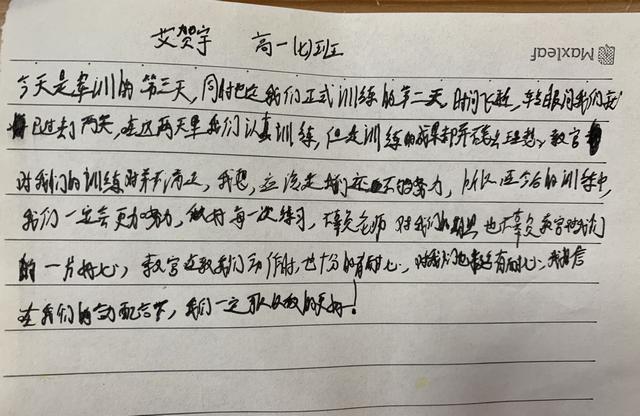 艾贺宇 高一(七)班
Maxleaf
今天是军训的第三天,同时也是我们正式训练的第二天,时间飞逝,转眼间我们就
已过去了两天,在这两天里我们认真训练,但是训练的成果却并不理想,教官
对我们的训练并不满意,我想,应该是我们还不够努力,所以在今后的训练中,
我们一定会更加努力,做好每一次练习,不辜负老师对我们的期望也不辜负教官对我们
的一片好心,教官在教我们动作时,也十分的有耐心,对我们也有耐心,我相信
在我们的配合下,我们一定可以做的更好!